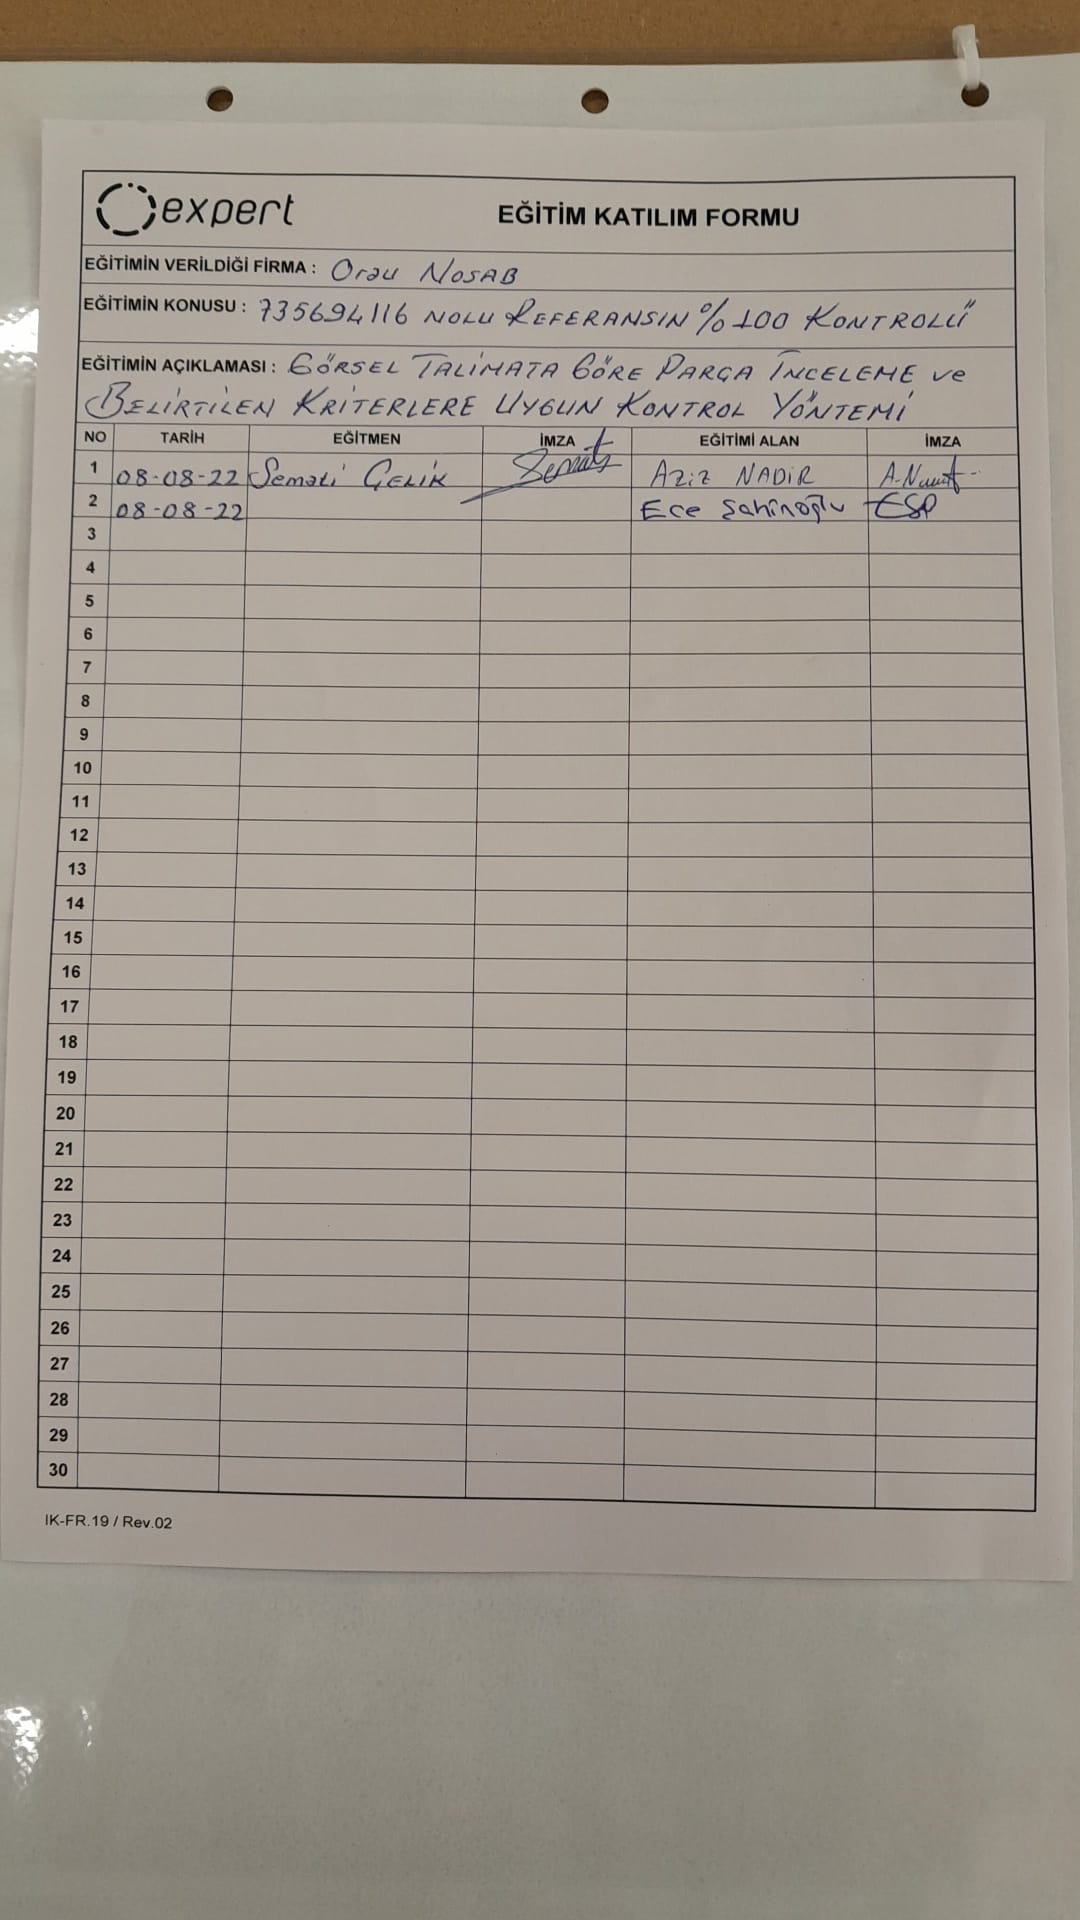 expert
EĞİTİM KATILIM FORMU
EĞİTİMİN VERİLDİĞİ FİRMA : Orau NOSAB
EĞİTİMİN KONUSU : 735694116 NOLU REFERANSIN %100 KONTROLÜ
EĞİTİMİN AÇIKLAMASI : GÖRSEL TALİMATA GÖRE PARÇA İNCELEME ve
BELİRTİLEN KRİTERLERE UYGUN KONTROL YÖNTEMİ
NO TARİH EĞİTMEN İMZA EĞİTİMİ ALAN İMZA
1 08-08-22 Semali ÇELİK Aziz NADİR
2 08-08-22 Ece Şahinoğlu
3
4
5
6
7
8
9
10
11
12
13
14
15
16
17
18
19
20
21
22
23
24
25
26
27
28
29
30
IK-FR.19 / Rev.02